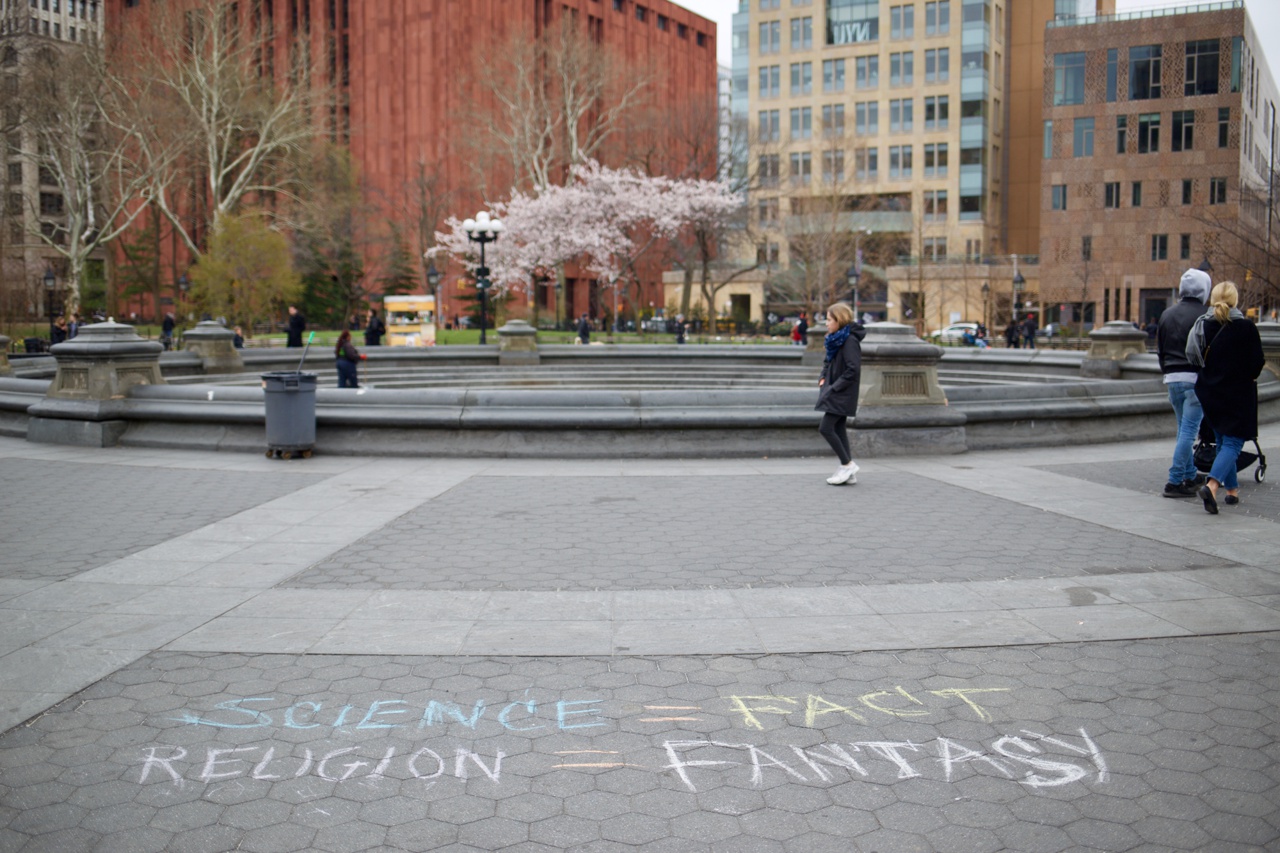 NYU
SCIENCE = FACT
RELIGION = FANTASY